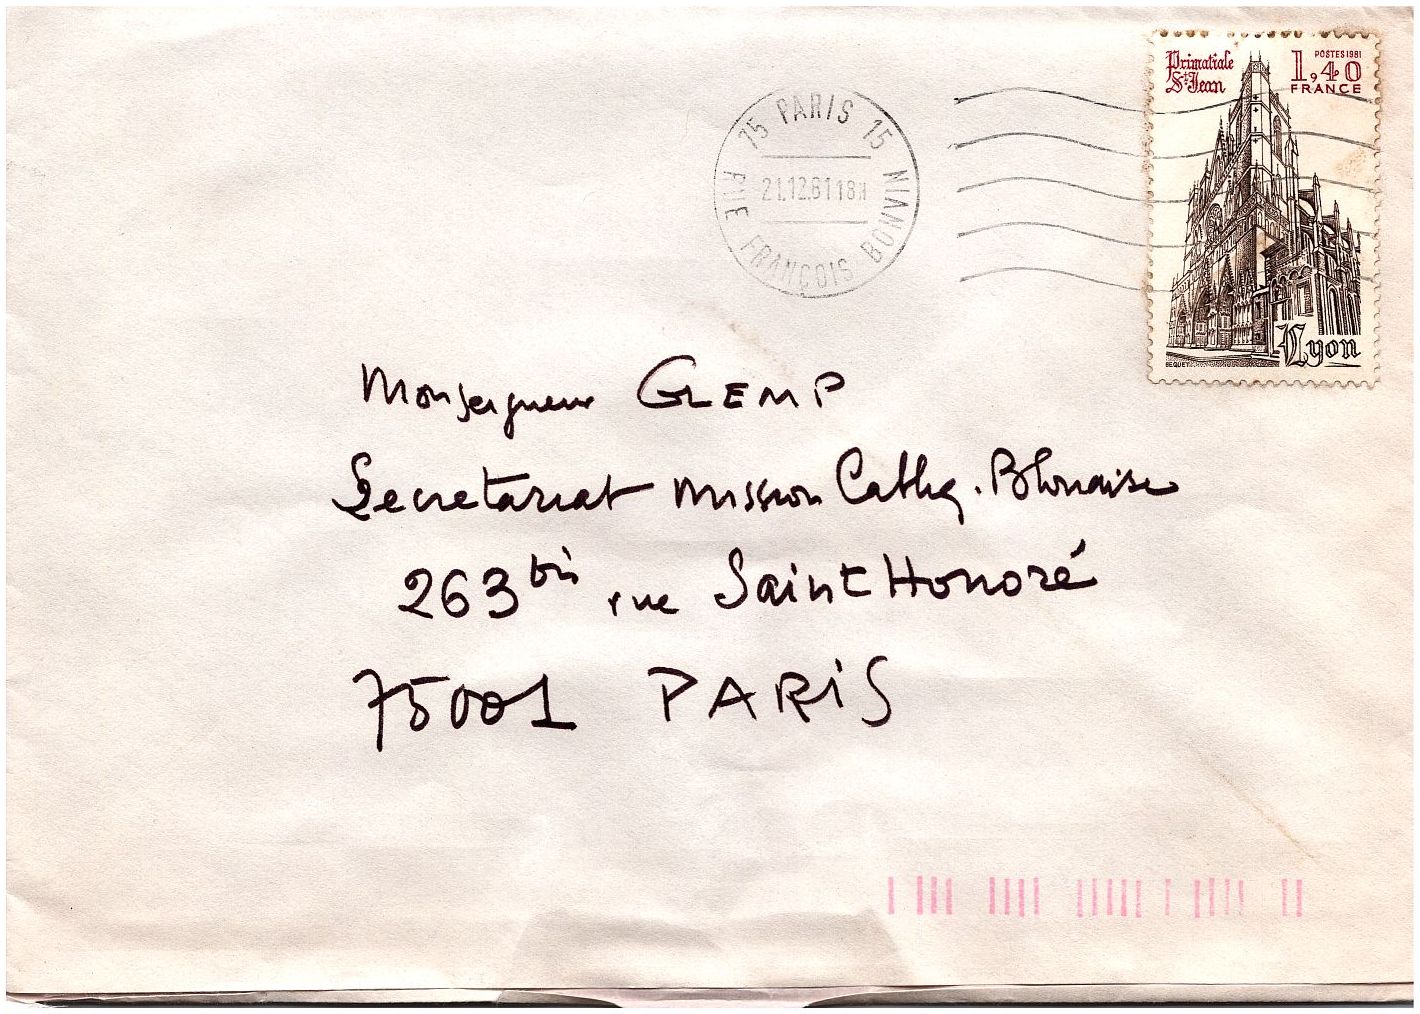 Primatiale
St Jean
POSTES 1981
1,40
FRANCE
Lyon
BEQUET
75 PARIS 15
21.12.81 18H
RUE FRANÇOIS BONVIN
Monseigneur GLEMP
Secretariat Mission Cathq. Polonaise
263 bis rue Saint Honoré
75001 PARIS